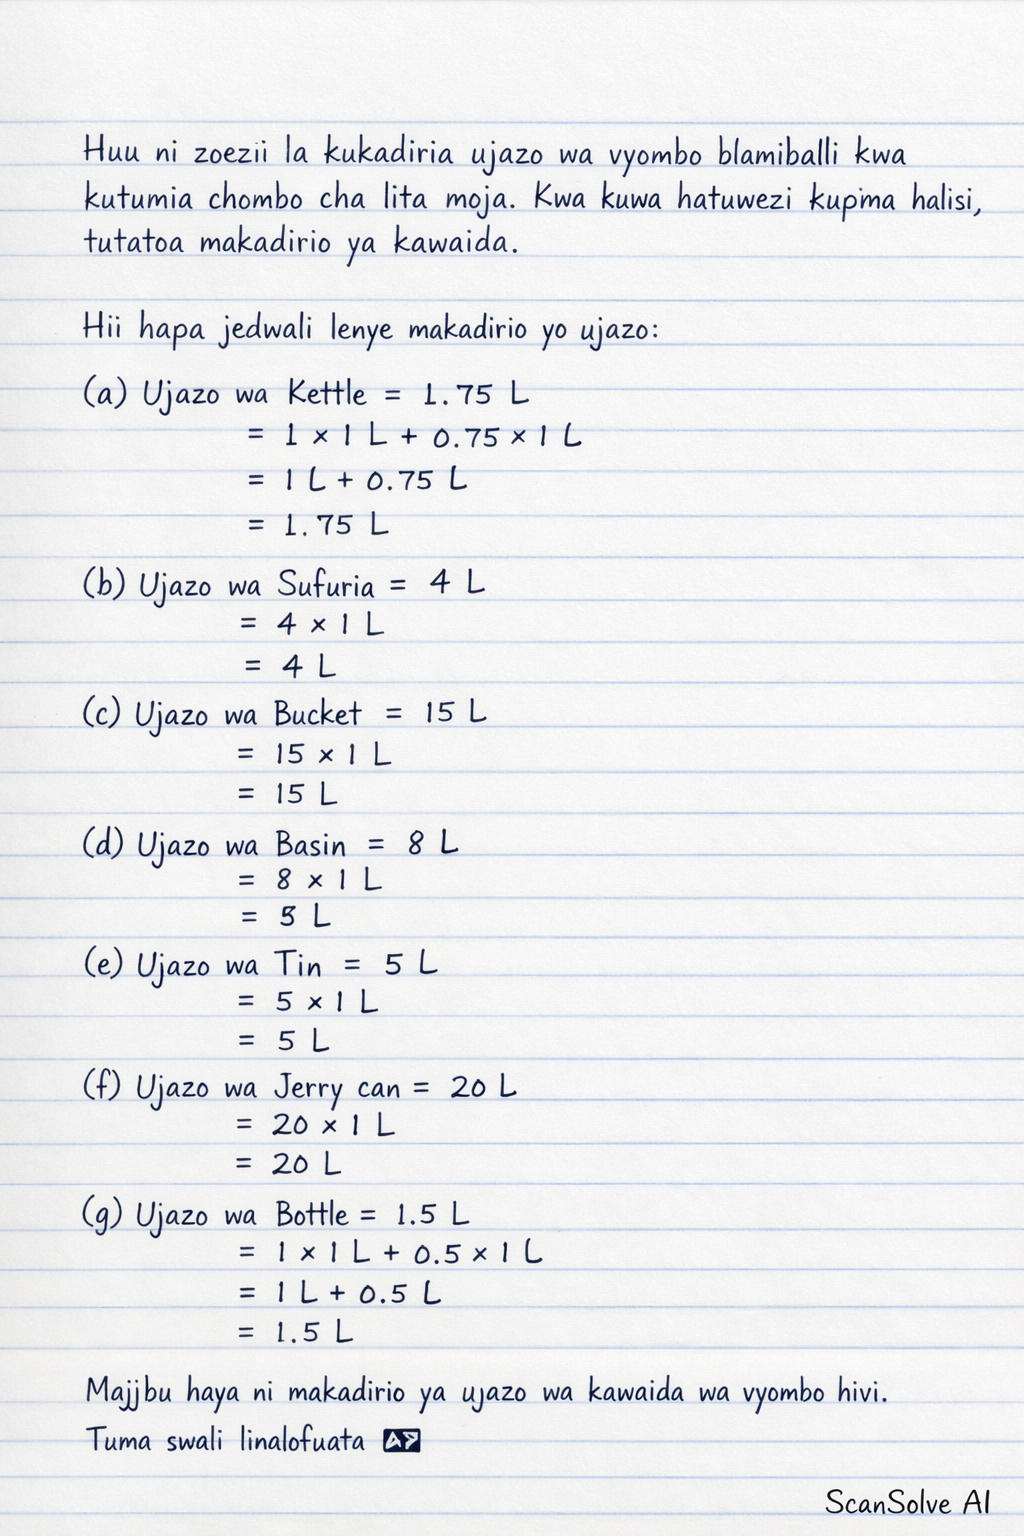 Huu ni zoezii la kukadiria ujazo wa vyombo blamiballi kwa
kutumia chombo cha lita moja. Kwa kuwa hatuwezi kupima halisi,
tutatoa makadirio ya kawaida.
Hii hapa jedwali lenye makadirio yo ujazo:
(a) Ujazo wa Kettle = 1.75 L
= 1 × 1 L + 0.75 × 1 L
= 1 L + 0.75 L
= 1.75 L
(b) Ujazo wa Sufuria = 4 L
= 4 × 1 L
= 4 L
(c) Ujazo wa Bucket = 15 L
= 15 × 1 L
= 15 L
(d) Ujazo wa Basin = 8 L
= 8 × 1 L
= 5 L
(e) Ujazo wa Tin = 5 L
= 5 × 1 L
= 5 L
(f) Ujazo wa Jerry can = 20 L
= 20 × 1 L
= 20 L
(g) Ujazo wa Bottle = 1.5 L
= 1 × 1 L + 0.5 × 1 L
= 1 L + 0.5 L
= 1.5 L
Majjbu haya ni makadirio ya ujazo wa kawaida wa vyombo hivi.
Tuma swali linalofuata
ScanSolve AI